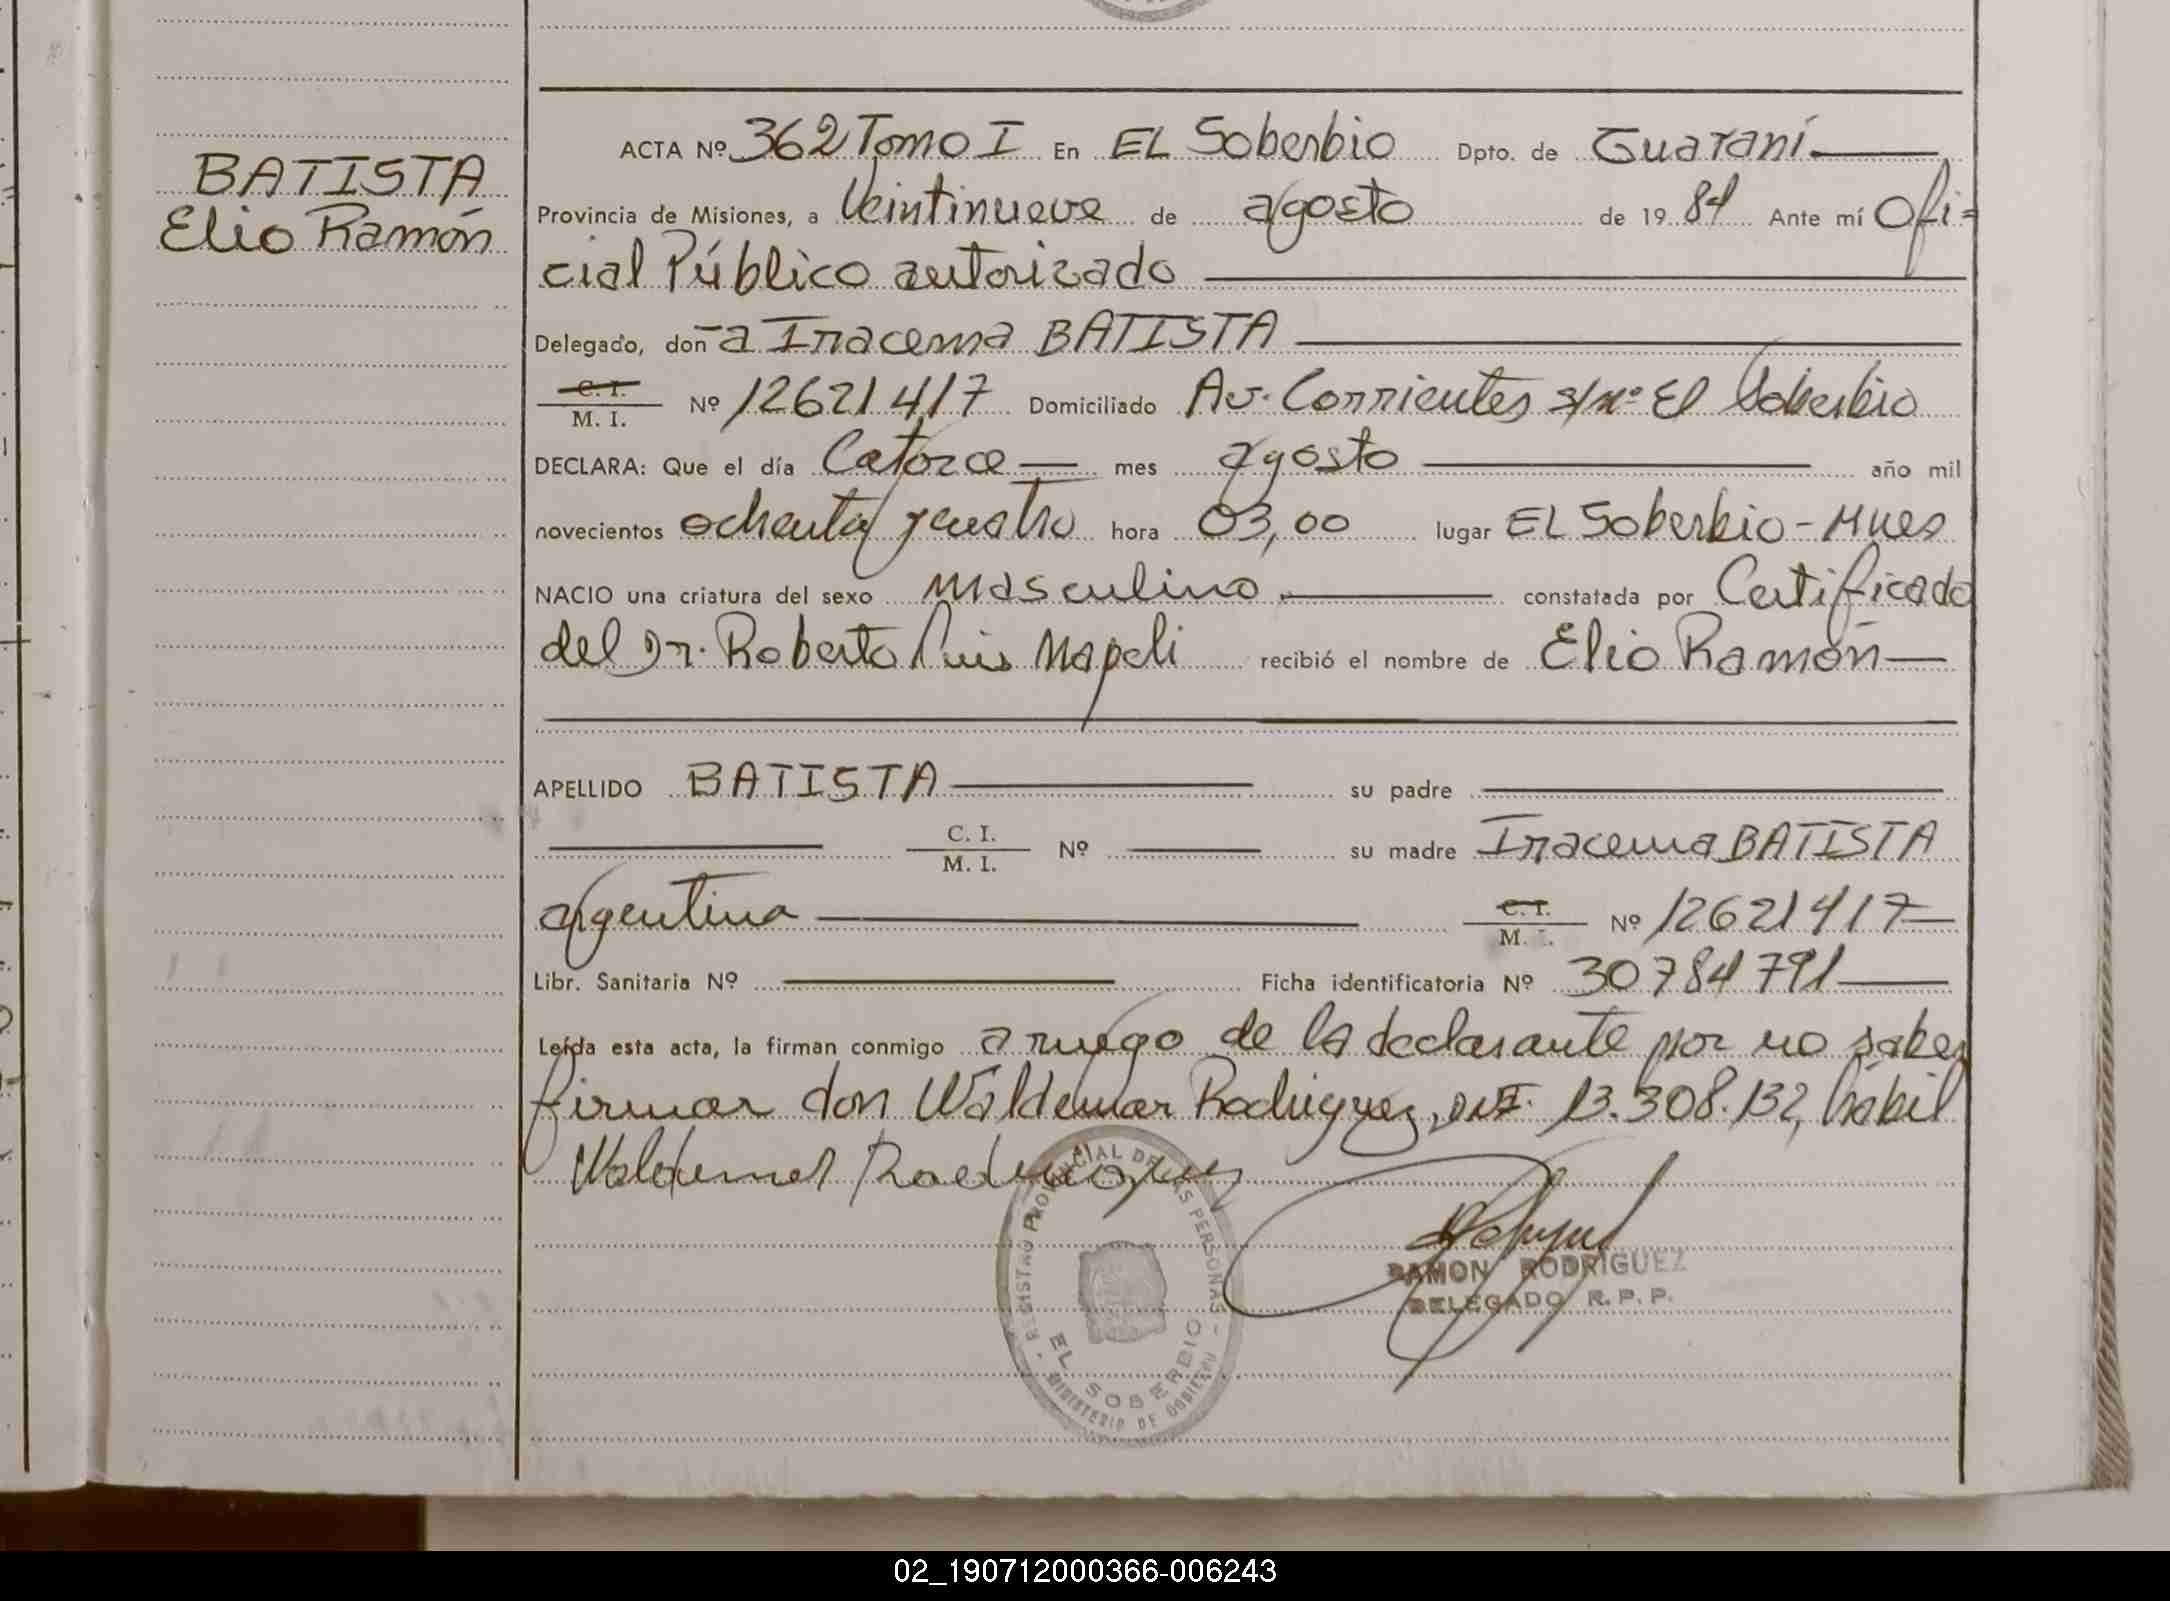 BATISTA
Elio Ramón
ACTA Nº 362 Tomo I En EL Soberbio Dpto. de Guaraní
Provincia de Misiones, a Veintinueve de agosto de 1984 Ante mí Ofi=
cial Público autorizado
Delegado, don-a Iracema BATISTA
C. I. / M. I. Nº 12621417 Domiciliado Av. Corrientes s/nº El Soberbio
DECLARA: Que el día Catorce mes agosto año mil
novecientos ochenta ycuatro hora 03,00 lugar EL Soberbio - Mnes
NACIO una criatura del sexo masculino constatada por Certificado
del Dr. Roberto Luis Napoli recibió el nombre de Elio Ramón
APELLIDO BATISTA su padre
C. I. / M. I. Nº su madre Iracema BATISTA
argentina C. I. / M. I. Nº 12621417
Libr. Sanitaria Nº Ficha identificatoria Nº 30784791
Leída esta acta, la firman conmigo a ruego de la declarante por no saber
firmar don Waldemar Rodriguez, DNI. 13.308.132, hábil
Waldemar Rodriguez
REGISTRO PROVINCIAL DE LAS PERSONAS - EL SOBERBIO - MINISTERIO DE GOBIERNO
RAMON RODRIGUEZ
DELEGADO R. P. P.
02_190712000366-006243